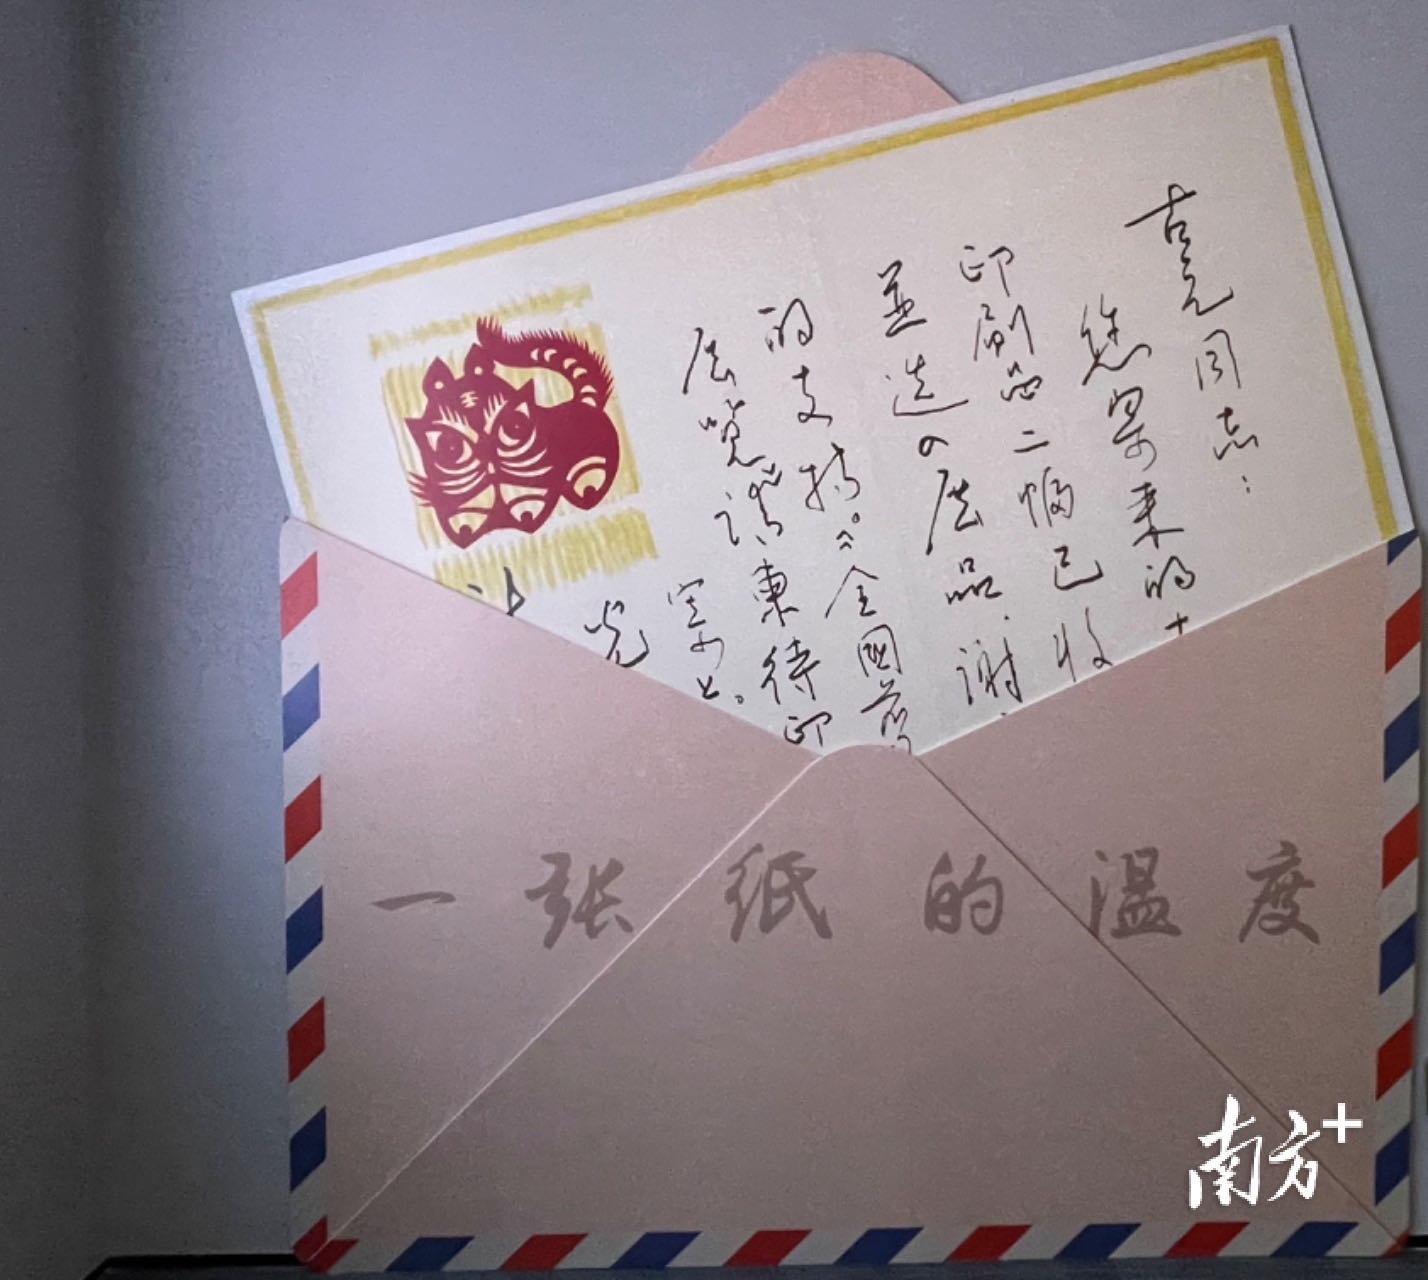 古元同志：
您寄来的
印刷品二幅已收
並选入展品，谢
的支持。《全國剪
展览》请柬待印
寄上。
一张纸的温度
南方+